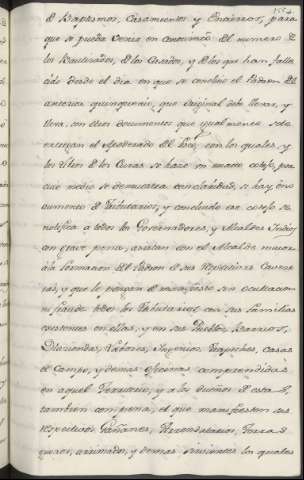 de Baptismos, Casamientos y Entierros, para
que se pueda venir en conocimto. del numero de
los Bautizados, de los Casados, y de los que han falle
cido desde el dia en que se concluió el Padron del
anterior quinquenio, que original debe llevar, y
lleva, con otros documentos que igualmente se le
entregan el Apoderado de con los quales, y
los Libros de los Curas se hace un exacto cotejo, por
cuio medio se demuestra con claridad, si hay ó no
aumento de Tributarios; y concluido ese cotejo se
notifica a todos los Governadores, y Alcaldes Indios
con grave pena, asistan con el Alcalde maior
á la formacion del Padron de sus respectivas Cavece
ras, y que le pongan de manifiesto sin ocultacion
ni fraude todos los Tributarios con sus familias
existentes en ellas, y en sus Pueblos, Barrios,
Haciendas, Labores, Ingenios, Trapiches, Casas
de Campo, y demas oficinas comprendidas
en aquel Territorio, y a los dueños de estas
tambien con pena, el que manifiesten sus
respectivos Gañanes, Arrendatarios, Terras
gueros, arrimados, y demas sirvientes los quales